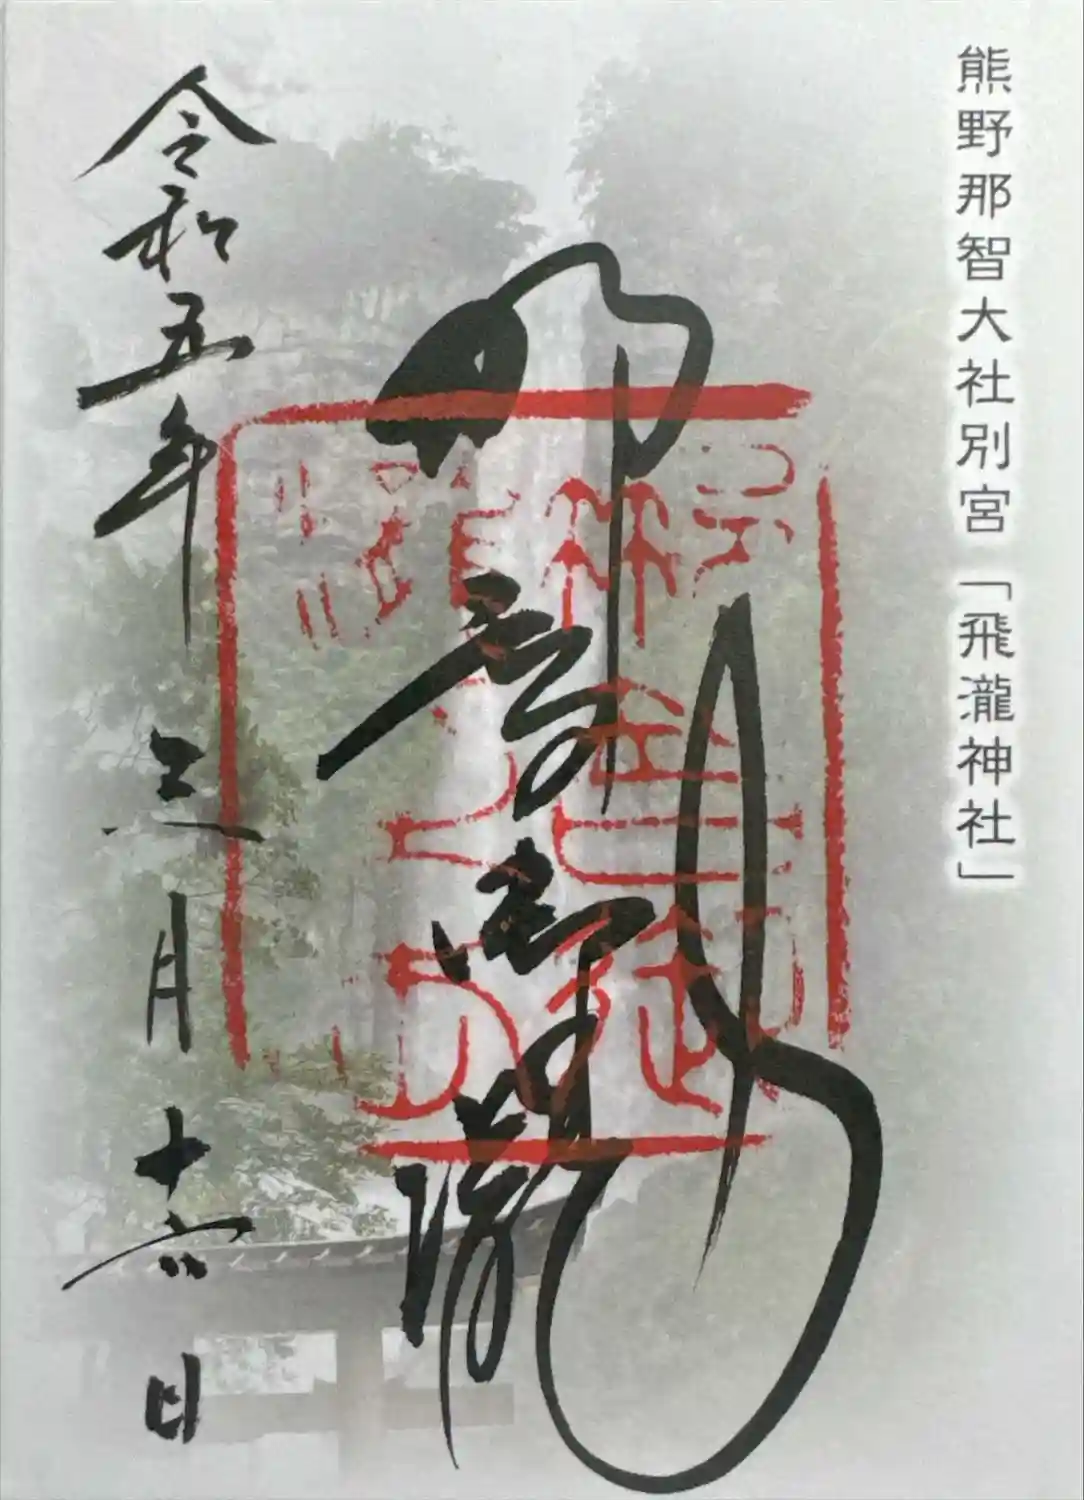 熊野那智大社別宮「飛瀧神社」
那智御瀧
令和五年三月十六日